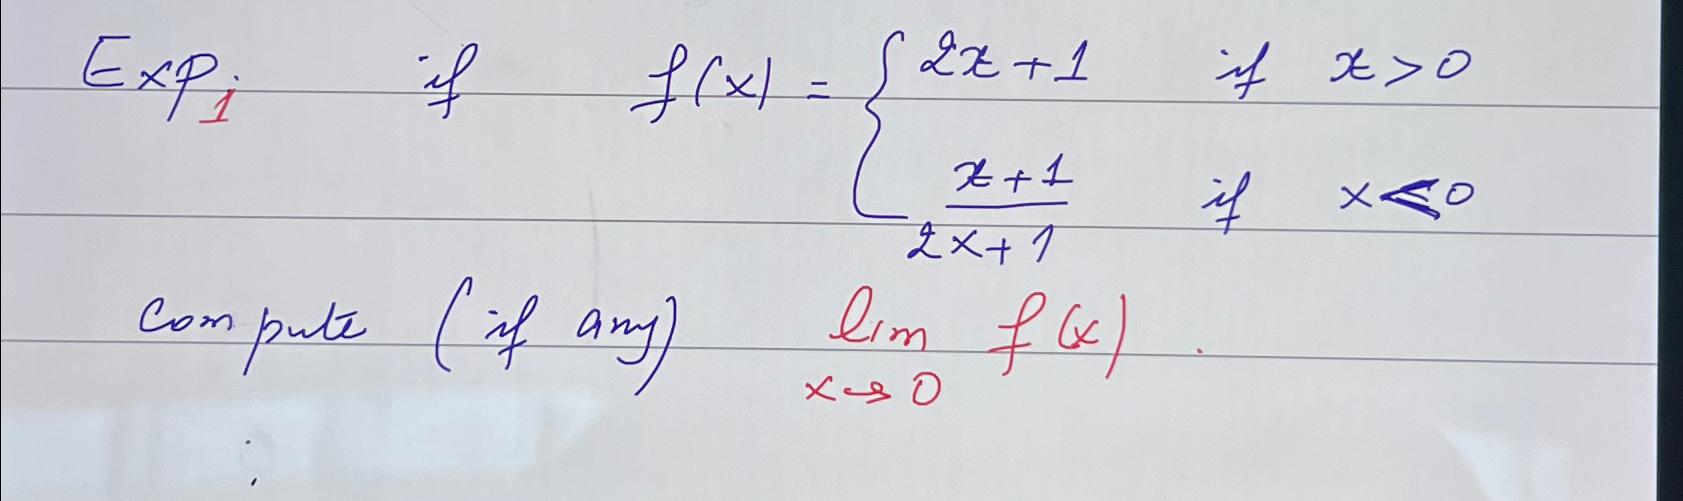 Exp1 if f(x) = { 2x+1 if x>0
x+1 / 2x+1 if x≤0
compute (if any) lim f(x).
x→0